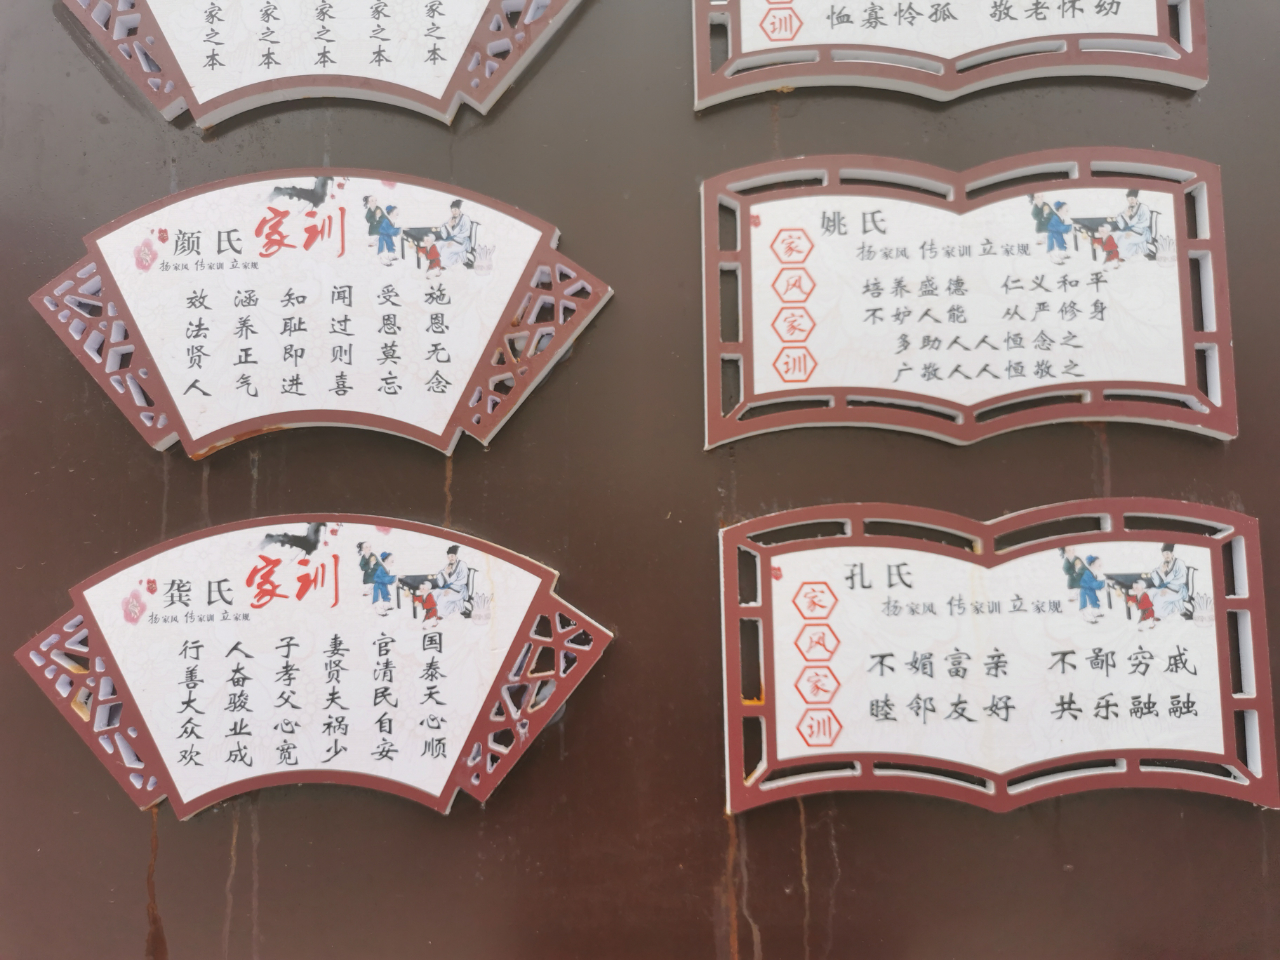 家之本
家之本
家之本
家之本
家之本
训
恤寡怜孤 敬老怀幼
颜氏家训
扬家风 传家训 立家规
施恩无念
受恩莫忘
闻过则喜
知耻即进
涵养正气
效法贤人
家风家训
姚氏
扬家风 传家训 立家规
培养盛德 仁义和平
不妒人能 从严修身
多助人人恒念之
广敬人人恒敬之
龚氏家训
扬家风 传家训 立家规
国泰天心顺
官清民自安
妻贤夫祸少
子孝父心宽
人奋骏业成
行善大众欢
家风家训
孔氏
扬家风 传家训 立家规
不媚富亲 不鄙穷戚
睦邻友好 共乐融融